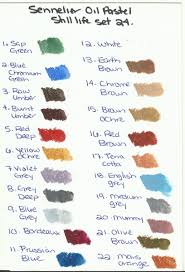 Sennelier Oil Pastel
Still life set 24.
1. Sap Green
2. Blue Chromium Green
3. Raw Umber
4. Burnt Umber
5. Red Deep
6. Yellow Ochre
7. Violet Grey
8. Grey Deep
9. Blue Grey
10. Bordeaux
11. Prussian Blue
12. White
13. Earth Brown
14. Chrome Brown
15. English Red
16. Red Brown
17. Terra Cotta
18. English grey
19. Medium grey
20. Mummy
21. Olive Brown
22. Mars Orange